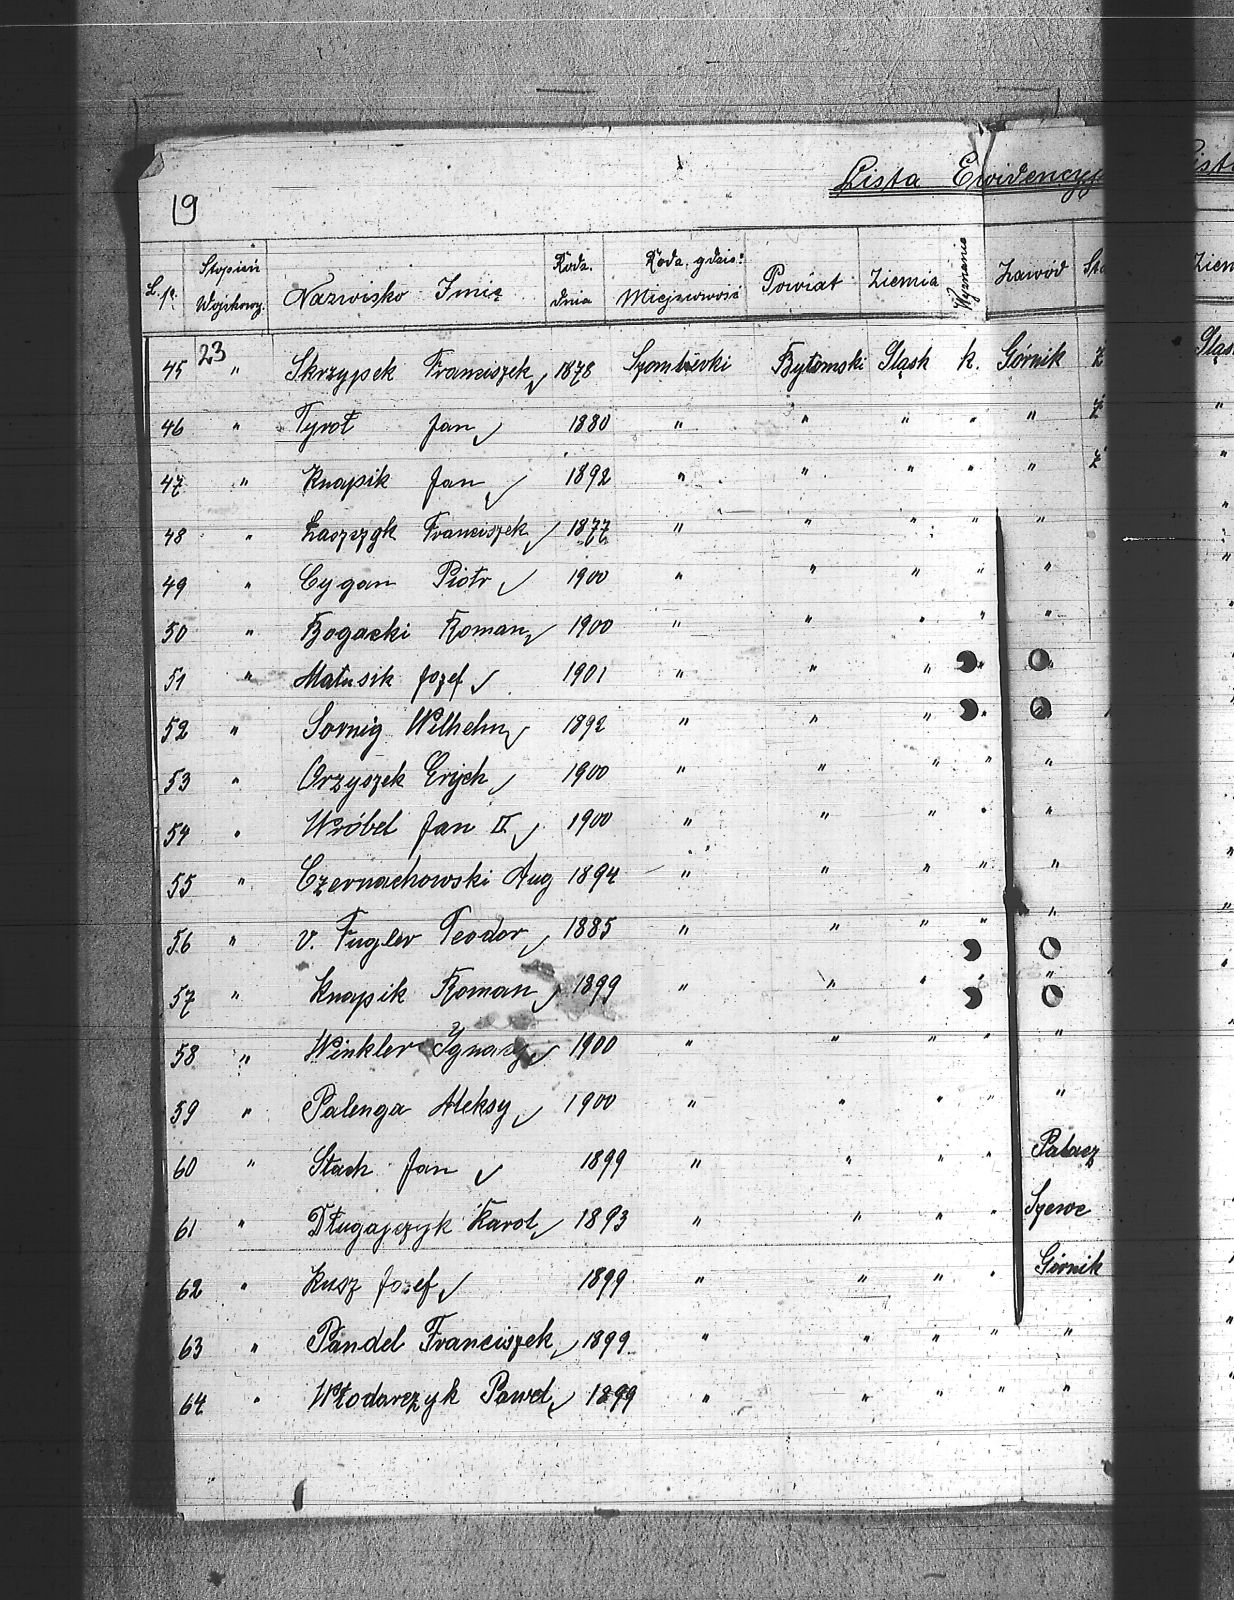 19
Lista Ewidencyj
L.p. Stopień Wojskowy. Nazwisko Imię Rodz. dnia Rodz. gdzie: Miejscowość Powiat Ziemia Wyznanie Zawód Sta
23
45 " Skrzypek Franciszek 1878 Szombierki Bytomski Śląsk k. Górnik Ż
46 " Tyroł Jan 1880 " " " " " Ż
47 " Knapik Jan 1892 " " " " " Ż
48 " Łaszczyk Franciszek 1877 " " " " "
49 " Cygan Piotr 1900 " " " " "
50 " Bogacki Roman 1900 " " " " "
51 " Matusik Jozef 1901 " " " "
52 " Sornig Wilhelm 1892 " " " "
53 " Orzyszek Erych 1900 " " " " "
54 " Wróbel Jan II 1900 " " " " "
55 " Czernachowski Aug 1894 " " " " "
56 " v. Fugler Teodor 1885 " " " " "
57 " Knapik Roman 1899 " " " " "
58 " Winkler Ignacy 1900 " " " " "
59 " Palenga Aleksy 1900 " " " " "
60 " Stach Jan 1899 " " " " Palacz
61 " Długajczyk Karol 1893 " " " " Szewc
62 " Kusz Jozef 1899 " " " " Górnik
63 " Pandel Franciszek 1899 " " " " "
64 " Włodarczyk Paweł 1899 " " " " "